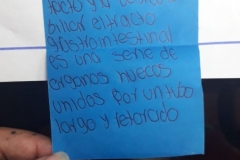 biliar el tracto
gastrointestinal
es una serie de
organos huecos
unidos por un tubo
largo y retorcido